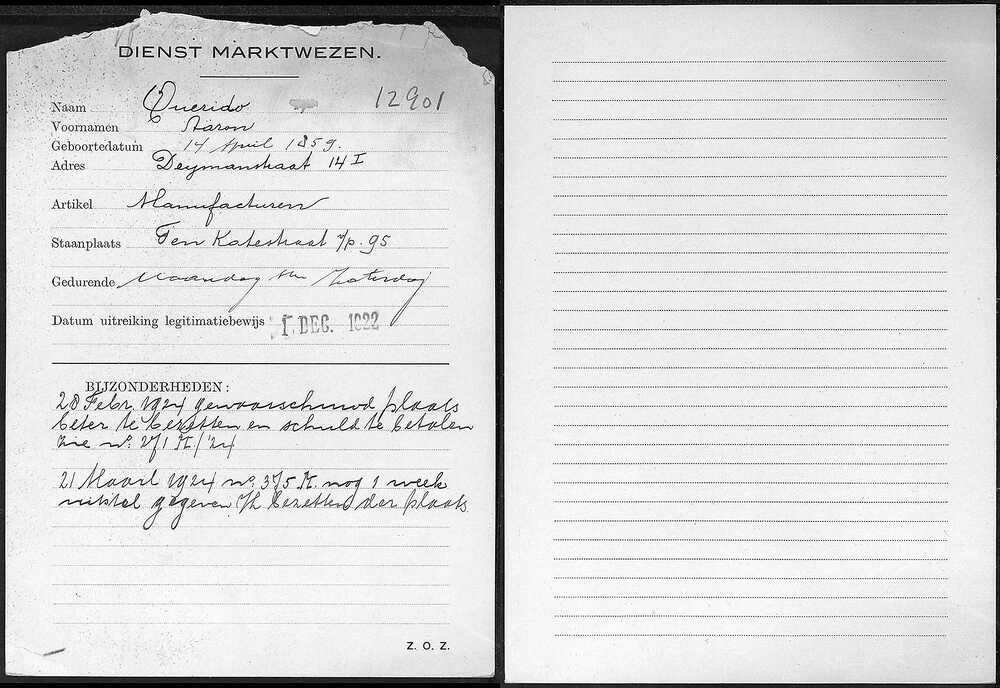 DIENST MARKTWEZEN.
Naam Querido 12901
Voornamen Aäron
Geboortedatum 14 April 1859.
Adres Deymanstraat 14 I
Artikel Manufacturen
Staanplaats Ten Katestraat v/p. 95
Gedurende Maandag t/m Zaterdag
Datum uitreiking legitimatiebewijs 1 DEC. 1922
BIJZONDERHEDEN:
28 Febr. 1924 gewaarschuwd plaats
beter te bezetten en schuld te betalen
zie no. 271 M/'24
21 Maart 1924 no. 375 M. nog 1 week
uitstel gegeven bezetten der plaats
Z. O. Z.